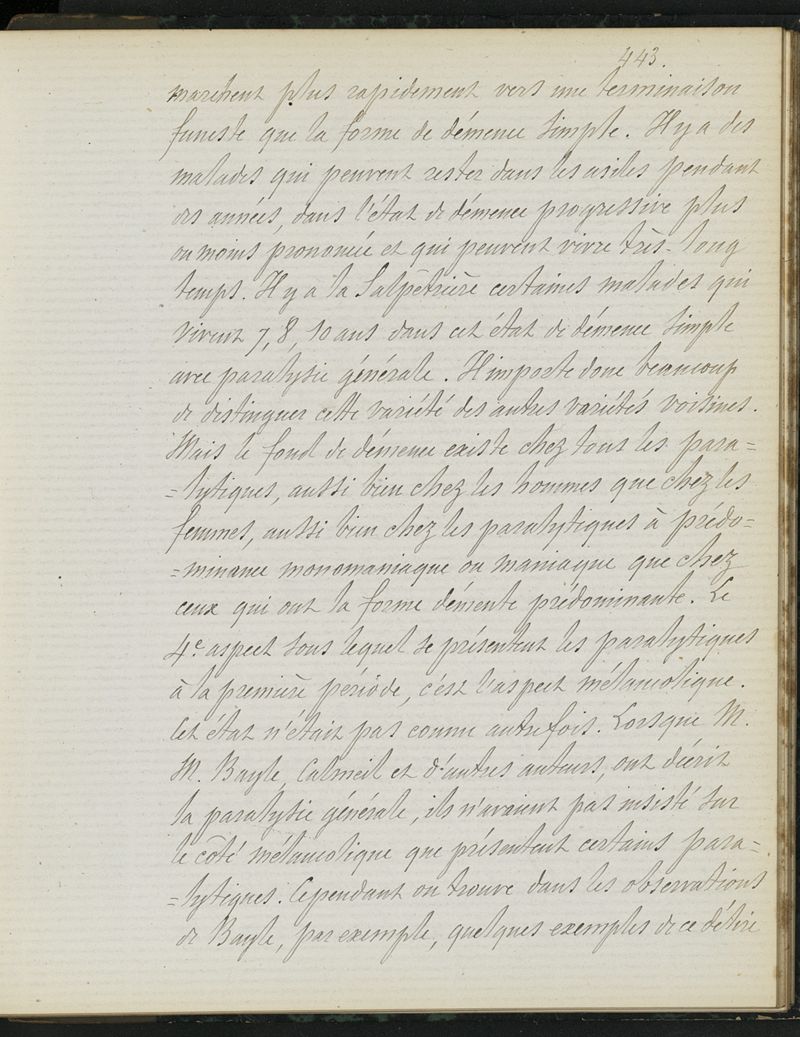 443.
marchent plus rapidement vers une terminaison
funeste que la forme de démence simple. Il y a des
malades qui peuvent rester dans les asiles pendant
des années, dans l'état de démence progressive plus
ou moins prononcée et qui peuvent vivre très-long
temps. Il y a la Salpêtrière certaines malades qui
vivent 7, 8, 10 ans dans cet état de démence simple
avec paralysie générale. Il importe donc beaucoup
de distinguer cette variété des autres variétés voisines.
Mais le fond de démence existe chez tous les para=
=lytiques, aussi bien chez les hommes que chez les
femmes, aussi bien chez les paralytiques à prédo=
=minance monomaniaque ou maniaque que chez
ceux qui ont la forme démente prédominante. Le
4e aspect sous lequel se présentent les paralytiques
à la première période, c'est l'aspect mélancolique.
Cet état n'était pas connu autrefois. Lorsque M.
M. Bayle, Calmeil et d'autres auteurs, ont décrit
la paralysie générale, ils n'avaient pas insisté sur
le côté mélancolique que présentent certains para=
=lytiques. Cependant on trouve dans les observations
de Bayle, par exemple, quelques exemples de ce délire